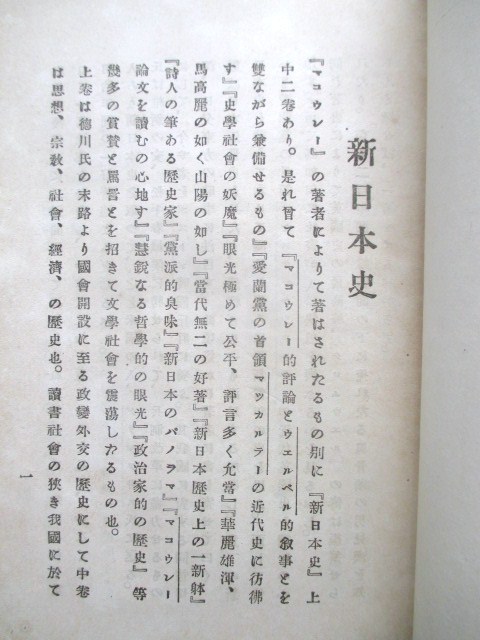 新日本史
『マコウレー』の著者によりて著はされたるもの別に『新日本史』上
中二卷あり。是れ曾て『マコウレー的評論とウエルベル的敍事とを
雙ながら兼備せるもの』『愛蘭黨の首領マツカルテーの近代史に彷彿
す』『史學社會の妖魔』『眼光極めて公平、評言多く允當』『華麗雄渾、
馬高麗の如く山陽の如し』『當代無二の好著』『新日本歷史上の一新躰』
『詩人の筆ある歷史家』『黨派的臭味』『新日本のパノラマ』『マコウレー
論文を讀むの心地す』『慧銳なる哲學的の眼光』『政治家的の歷史』等
幾多の賞贊と罵詈とを招きて文學社會を震蕩したるもの也。
上卷は德川氏の末路より國會開設に至る政變外交の歷史にして中卷
は思想、宗敎、社會、經濟、の歷史也。讀書社會の狹き我國に於て
一